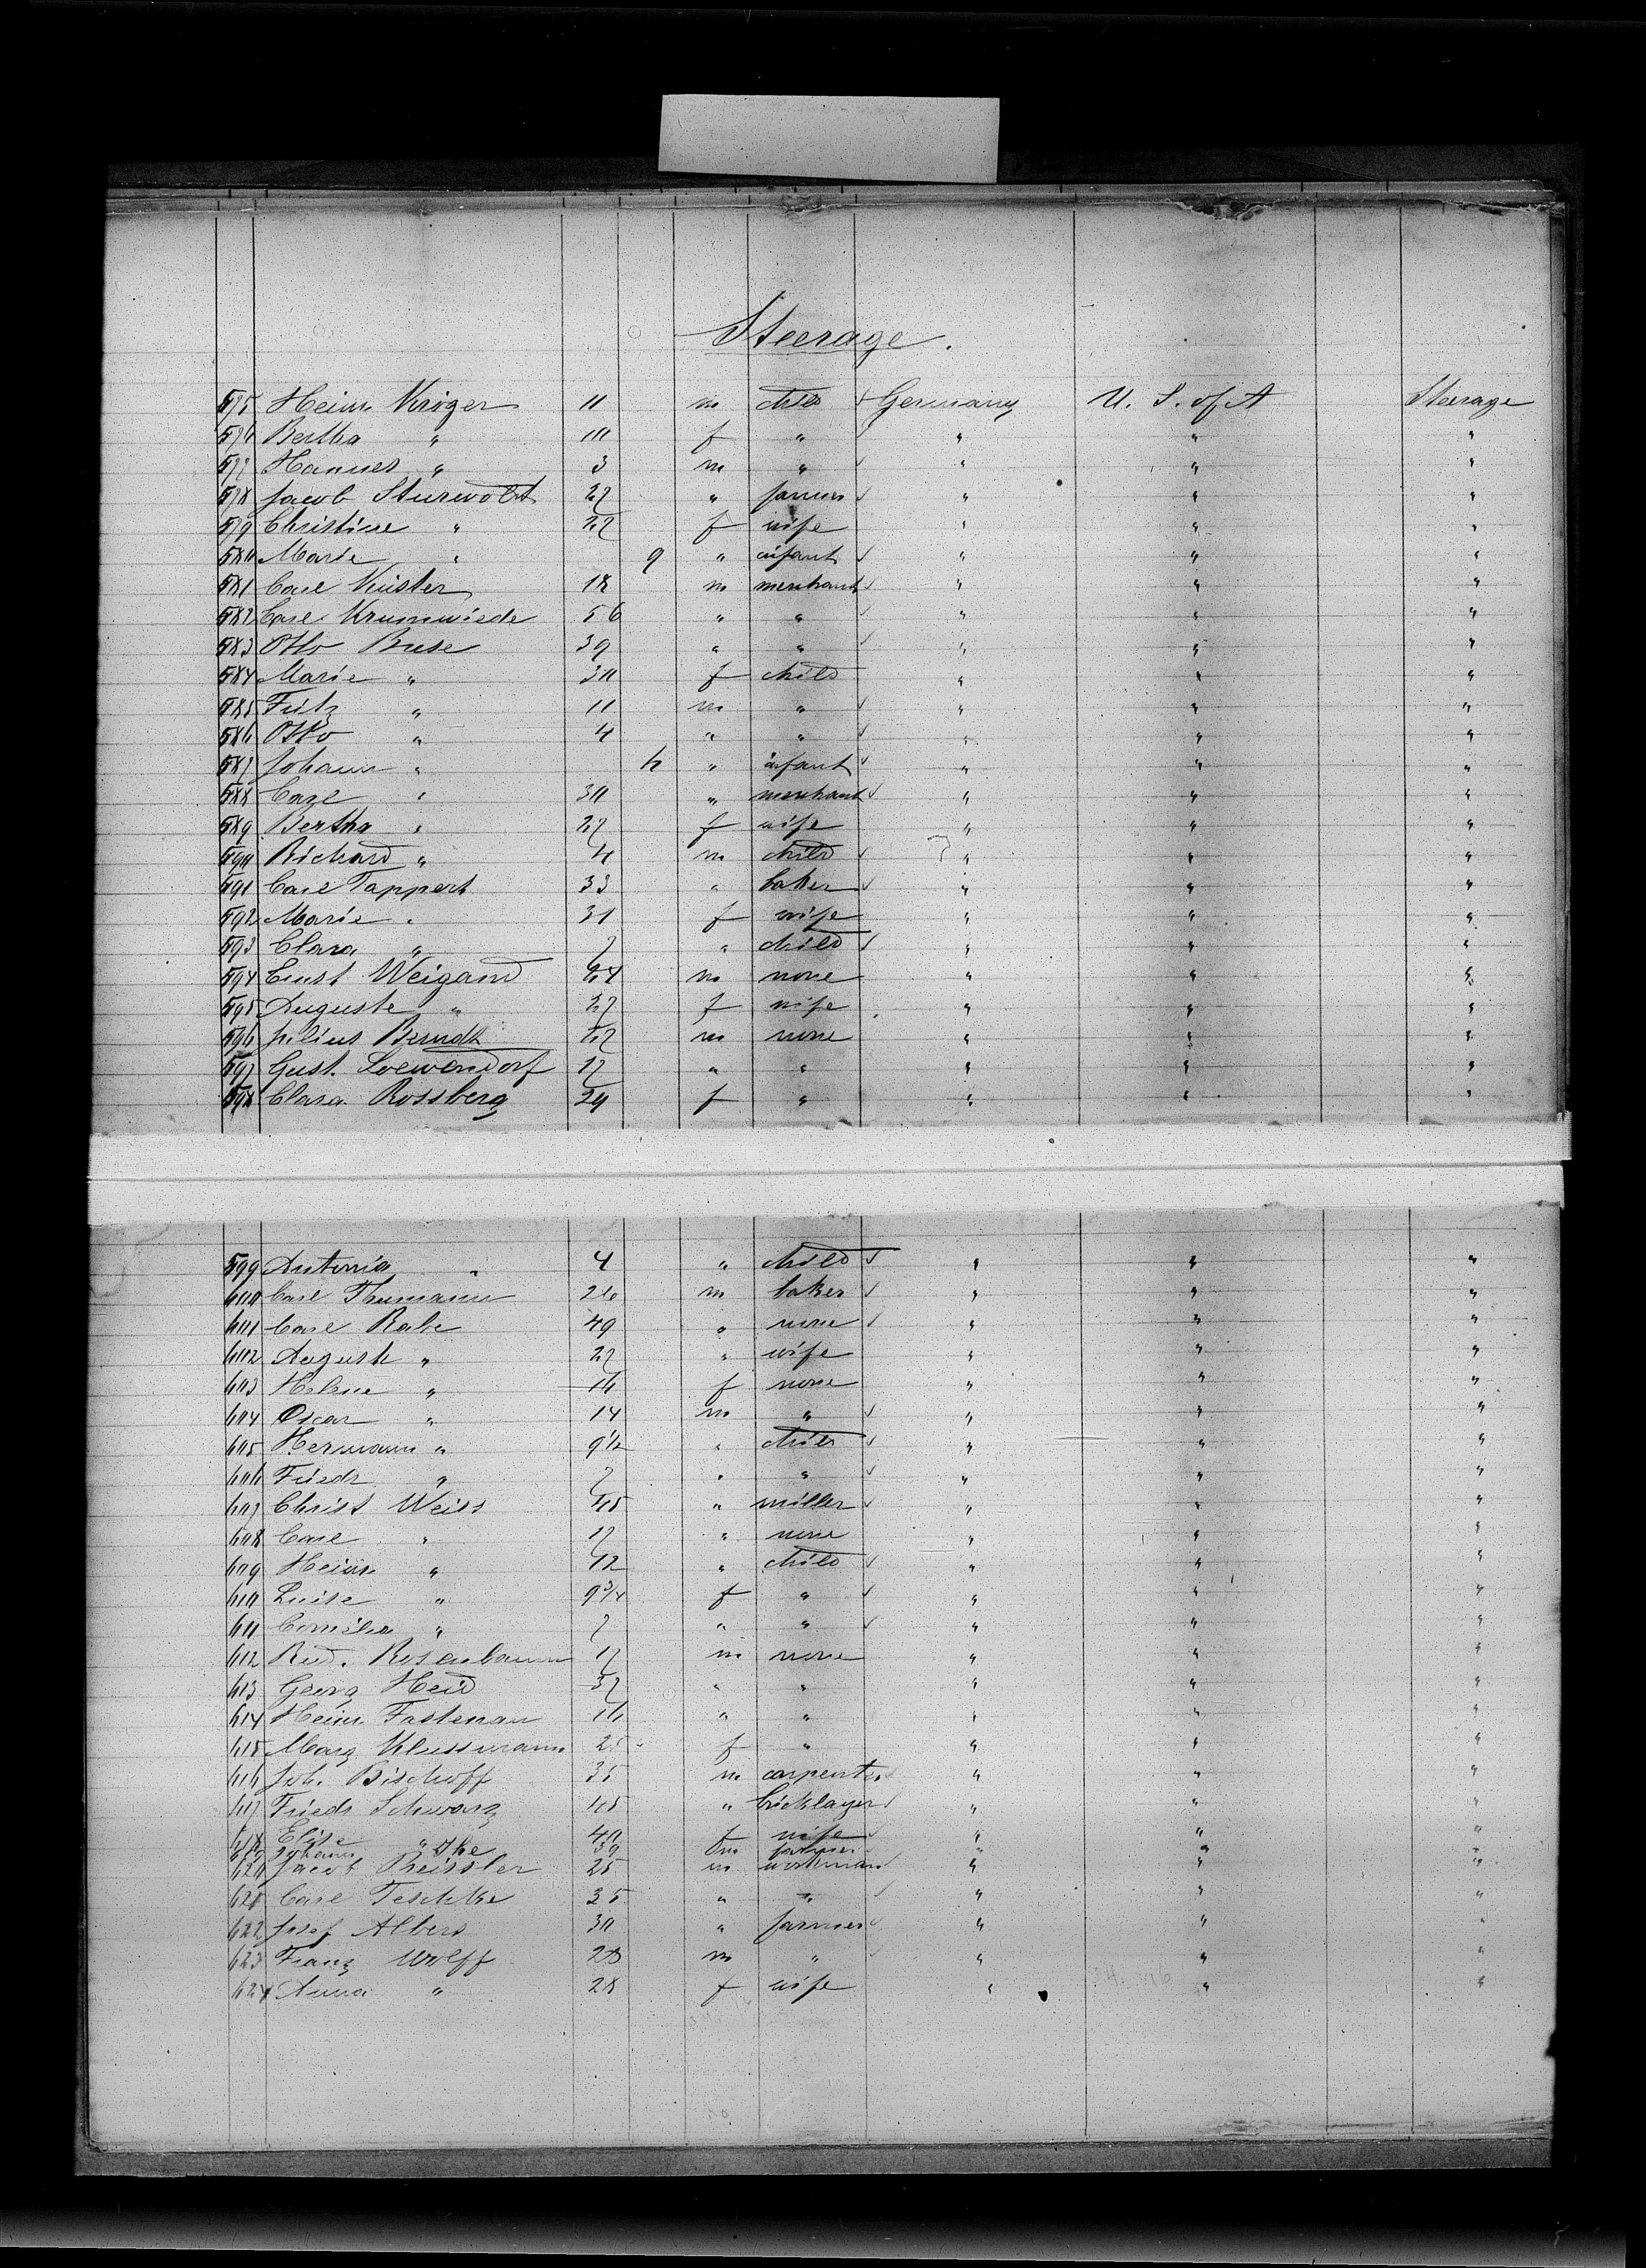 Steerage.
575 Heinr. Kröger 11 m child ✓ Germany U. S. of A Steerage
576 Bertha " 10 f " ✓ " " "
577 Hannes " 3 m " ✓ " " "
578 Jacob Sturwoldt 27 " farmer ✓ " " "
579 Christine " 22 f wife " " "
580 Marie " 9 " infant ✓ " " "
581 Carl Küster 18 m merchant ✓ " " "
582 Carl Krumwiede 56 " " ✓ " " "
583 Otto Buse 39 " " ✓ " " "
584 Marie " 30 f child " " "
585 Fritz " 11 m " ✓ " " "
586 Otto " 4 " " ✓ " " "
587 Johann " 6 " infant ✓ " " "
588 Carl " 30 " merchant ✓ " " "
589 Bertha " 27 f wife " " "
590 Richard " 4 m child ✓ " " "
591 Carl Tappert 33 " baker ✓ " " "
592 Marie " 31 f wife " " "
593 Clara " 7 " child ✓ " " "
594 Ernst Weigand 24 m none " " "
595 Auguste " 27 f wife " " "
596 Julius Berndt m none " " "
597 Gust. Loewendorf 17 " " " " "
598 Clara Rossberg 29 f " " " "
599 Antonia " 4 " child ✓ " " "
600 Carl Thumann 26 m baker ✓ " " "
601 Carl Rabe 49 " none ✓ " " "
602 August " 27 " wife " " "
603 Helene " 16 f none " " "
604 Oscar " 14 m " ✓ " " "
605 Hermann " 9½ " child ✓ " " "
606 Friedr " 7 " " ✓ " " "
607 Christ Weiss 45 " miller ✓ " " "
608 Carl " 17 " none " " "
609 Heinr. " 12 " child ✓ " " "
610 Luise " 9¾ f " ✓ " " "
611 " 7 " " ✓ " " "
612 Rud. Rosenbaum 17 m none " " "
613 Georg Heid 37 " " " " "
614 Heinr. Fastenau 16 " " " " "
615 Marg Klussmann f " " " "
616 Joh. Bischoff 35 m carpenter ✓ " " "
617 Friedr Schwarz 45 " bricklayer ✓ " " "
618 Elise " 40 f wife ✓ " " "
619 Johann 39 m farmer " " "
620 Jacob Preissler 25 m workman " " "
621 Carl Teschke 35 " " ✓ " " "
622 Josef Albers 30 " farmer ✓ " " "
623 Franz Wolff 28 m " ✓ " " "
624 Anna " 28 f wife " " "